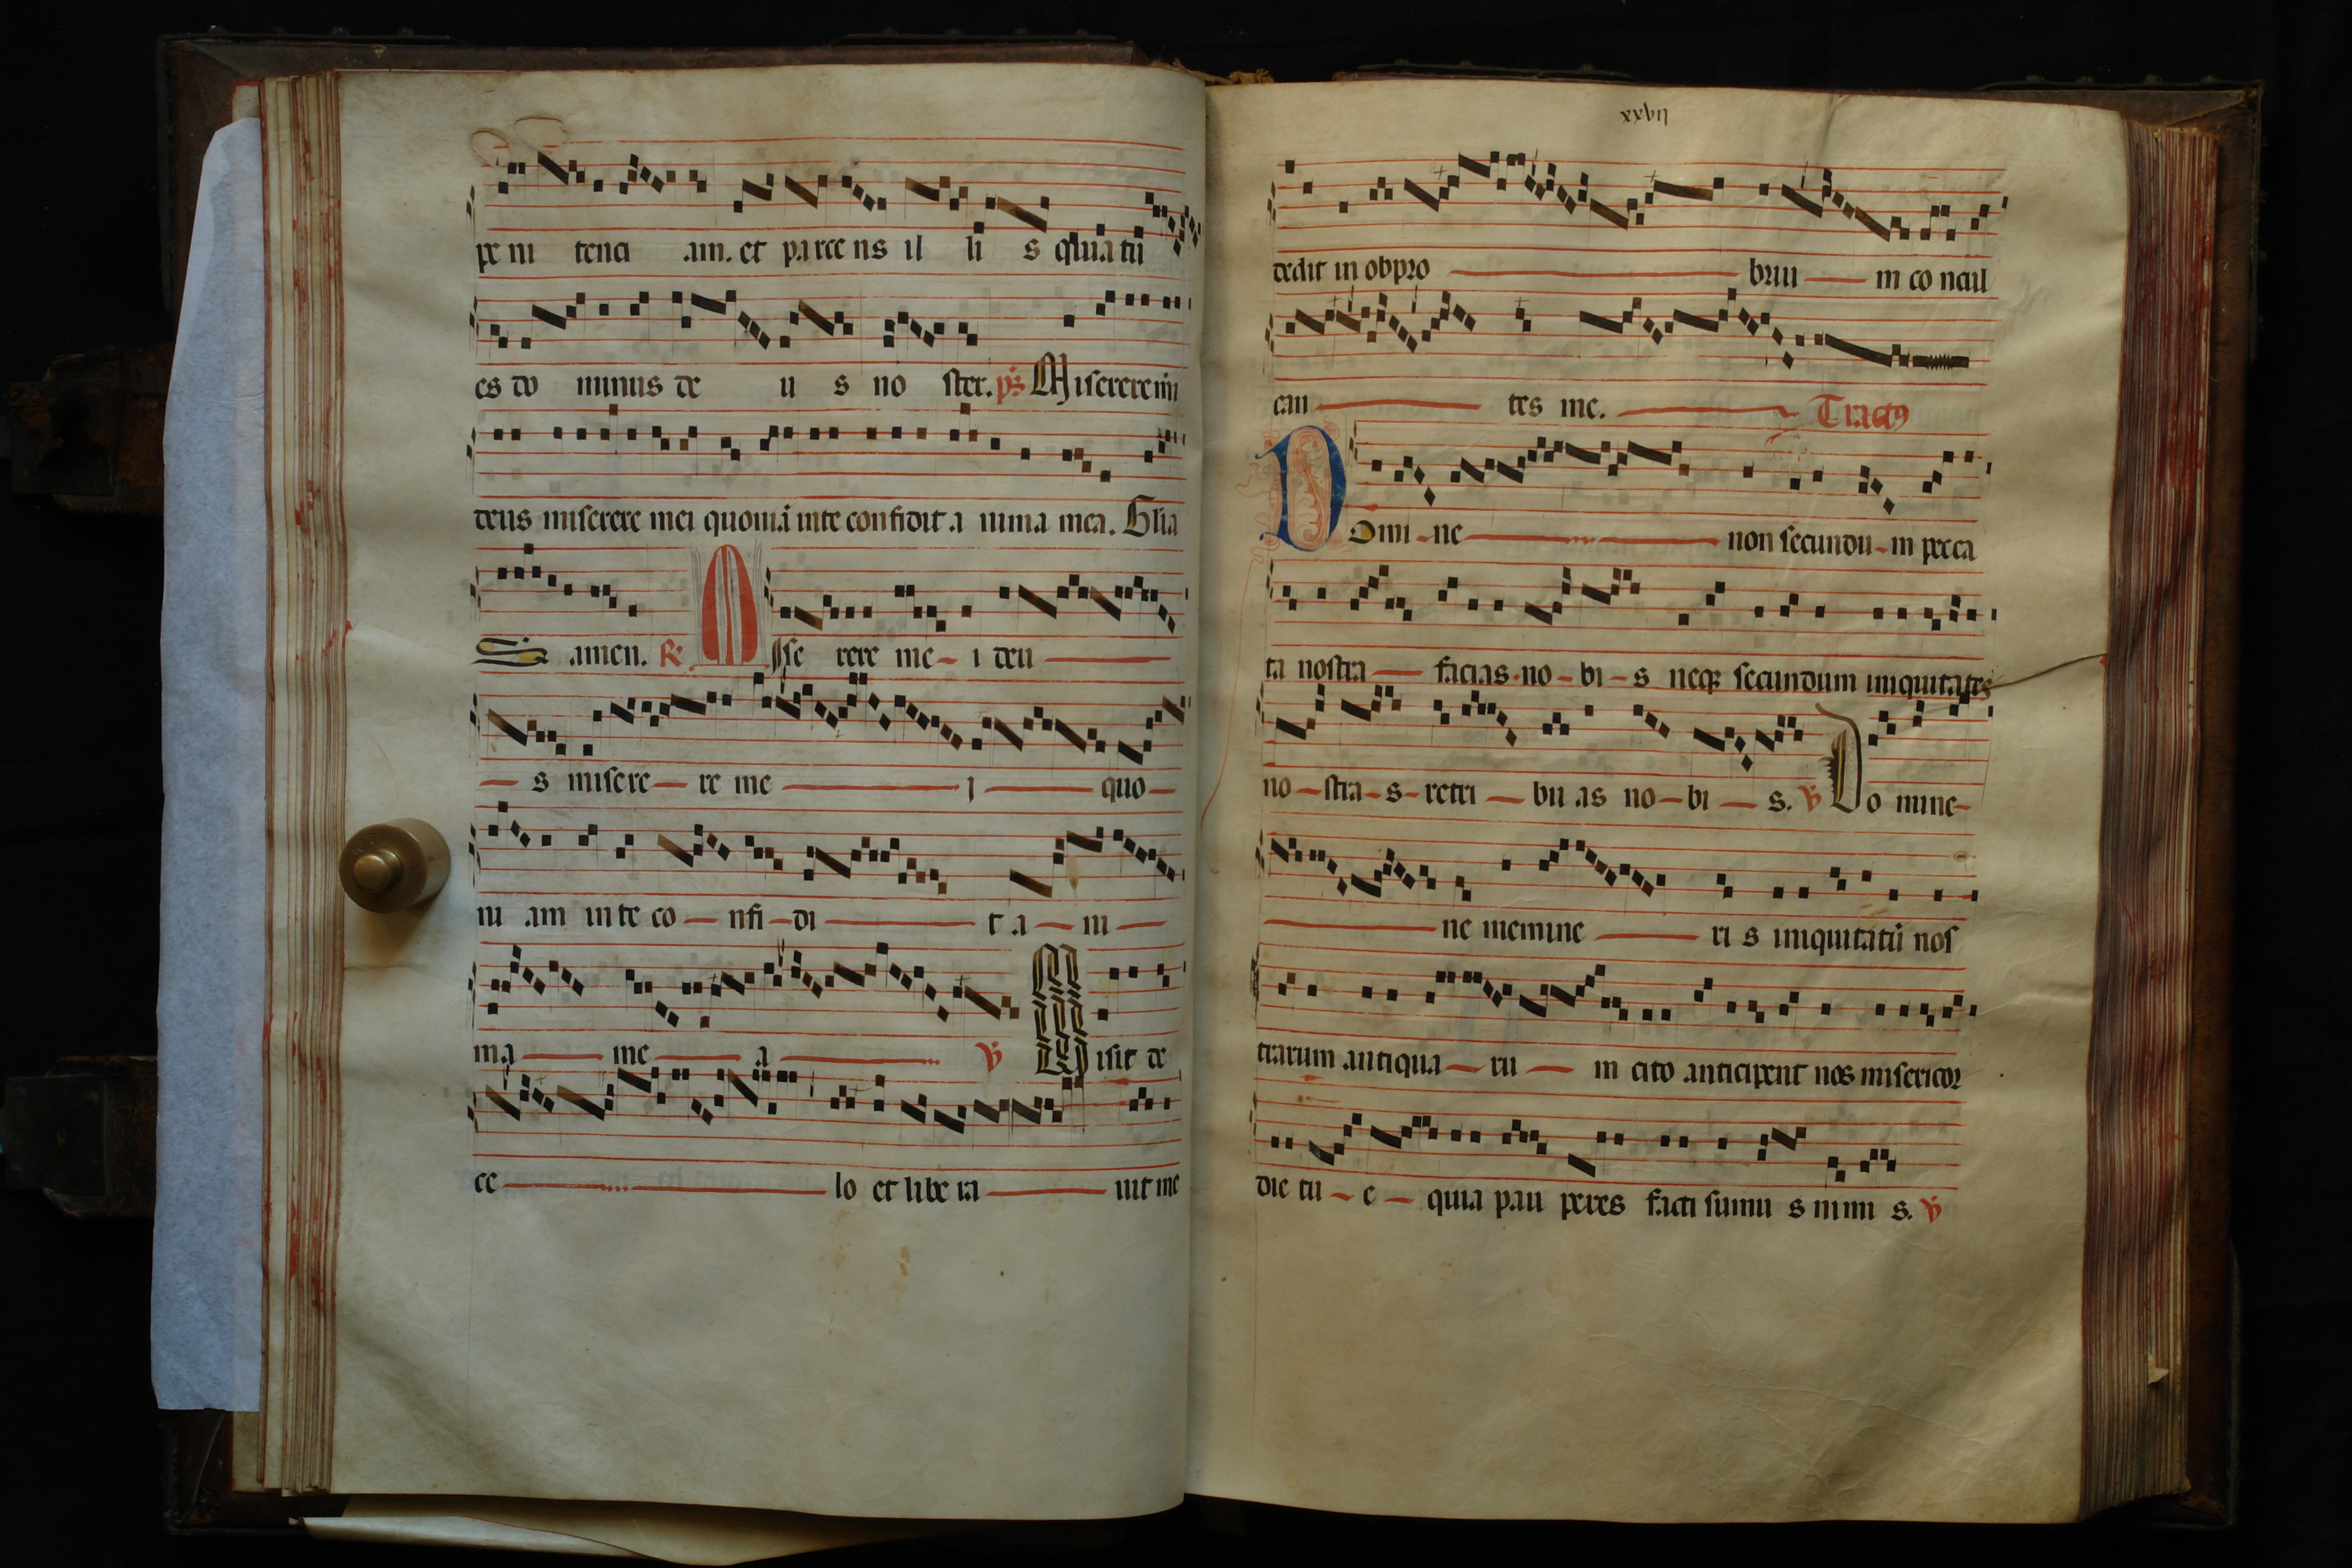 pe ni tenci am. et parce ns il li s quia tu
es do minus de u s no ster. ps Miserere mi
deus miserere mei quoniā in te confidit a nima mea. Glia
S amen. R Mise rere me - i deu
s misere re me i quo
ni am in te co nfi di t a ni
ma me a V Misit de
ce lo et libe ra uit me
xxvij
dedit in obpro briu m co ncul
can tes me. Tractꝰ
Domi - ne non secundu - m pecca
ta nostra facias no - bi - s neqꝫ secundum iniquitates
no - stra - s - retri bu as no - bi s. V Do mine
ne memine ri s iniquitatū nos
trarum antiqua ru m cito anticipent nos misericor
die tu - e - quia pau peres facti sumu s nimi s. V